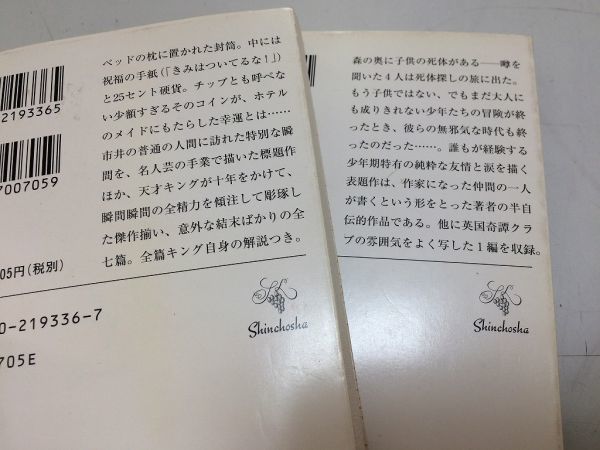 ベッドの枕に置かれた封筒。中には
祝福の手紙(「きみはついてるな!」)
と25セント硬貨。チップとも呼べな
い少額すぎるそのコインが、ホテル
のメイドにもたらした幸運とは……
市井の普通の人間に訪れた特別な瞬
間を、名人芸の手業で描いた標題作
ほか、天才キングが十年をかけて、
瞬間瞬間の全精力を傾注して彫琢し
た傑作揃い、意外な結末ばかりの全
七篇。全篇キング自身の解説つき。
2193365
7007059
05円(税別)
0-219336-7
705E
Shinchosha
森の奥に子供の死体がある——噂を
聞いた4人は死体探しの旅に出た。
もう子供ではない、でもまだ大人に
も成りきれない少年たちの冒険が終
ったとき、彼らの無邪気な時代も終
ったのだった……。誰もが経験する
少年期特有の純粋な友情と涙を描く
表題作は、作家になった仲間の一人
が書くという形をとった著者の半自
伝的作品である。他に英国奇譚クラ
ブの雰囲気をよく写した1編を収録。
Shinchosha